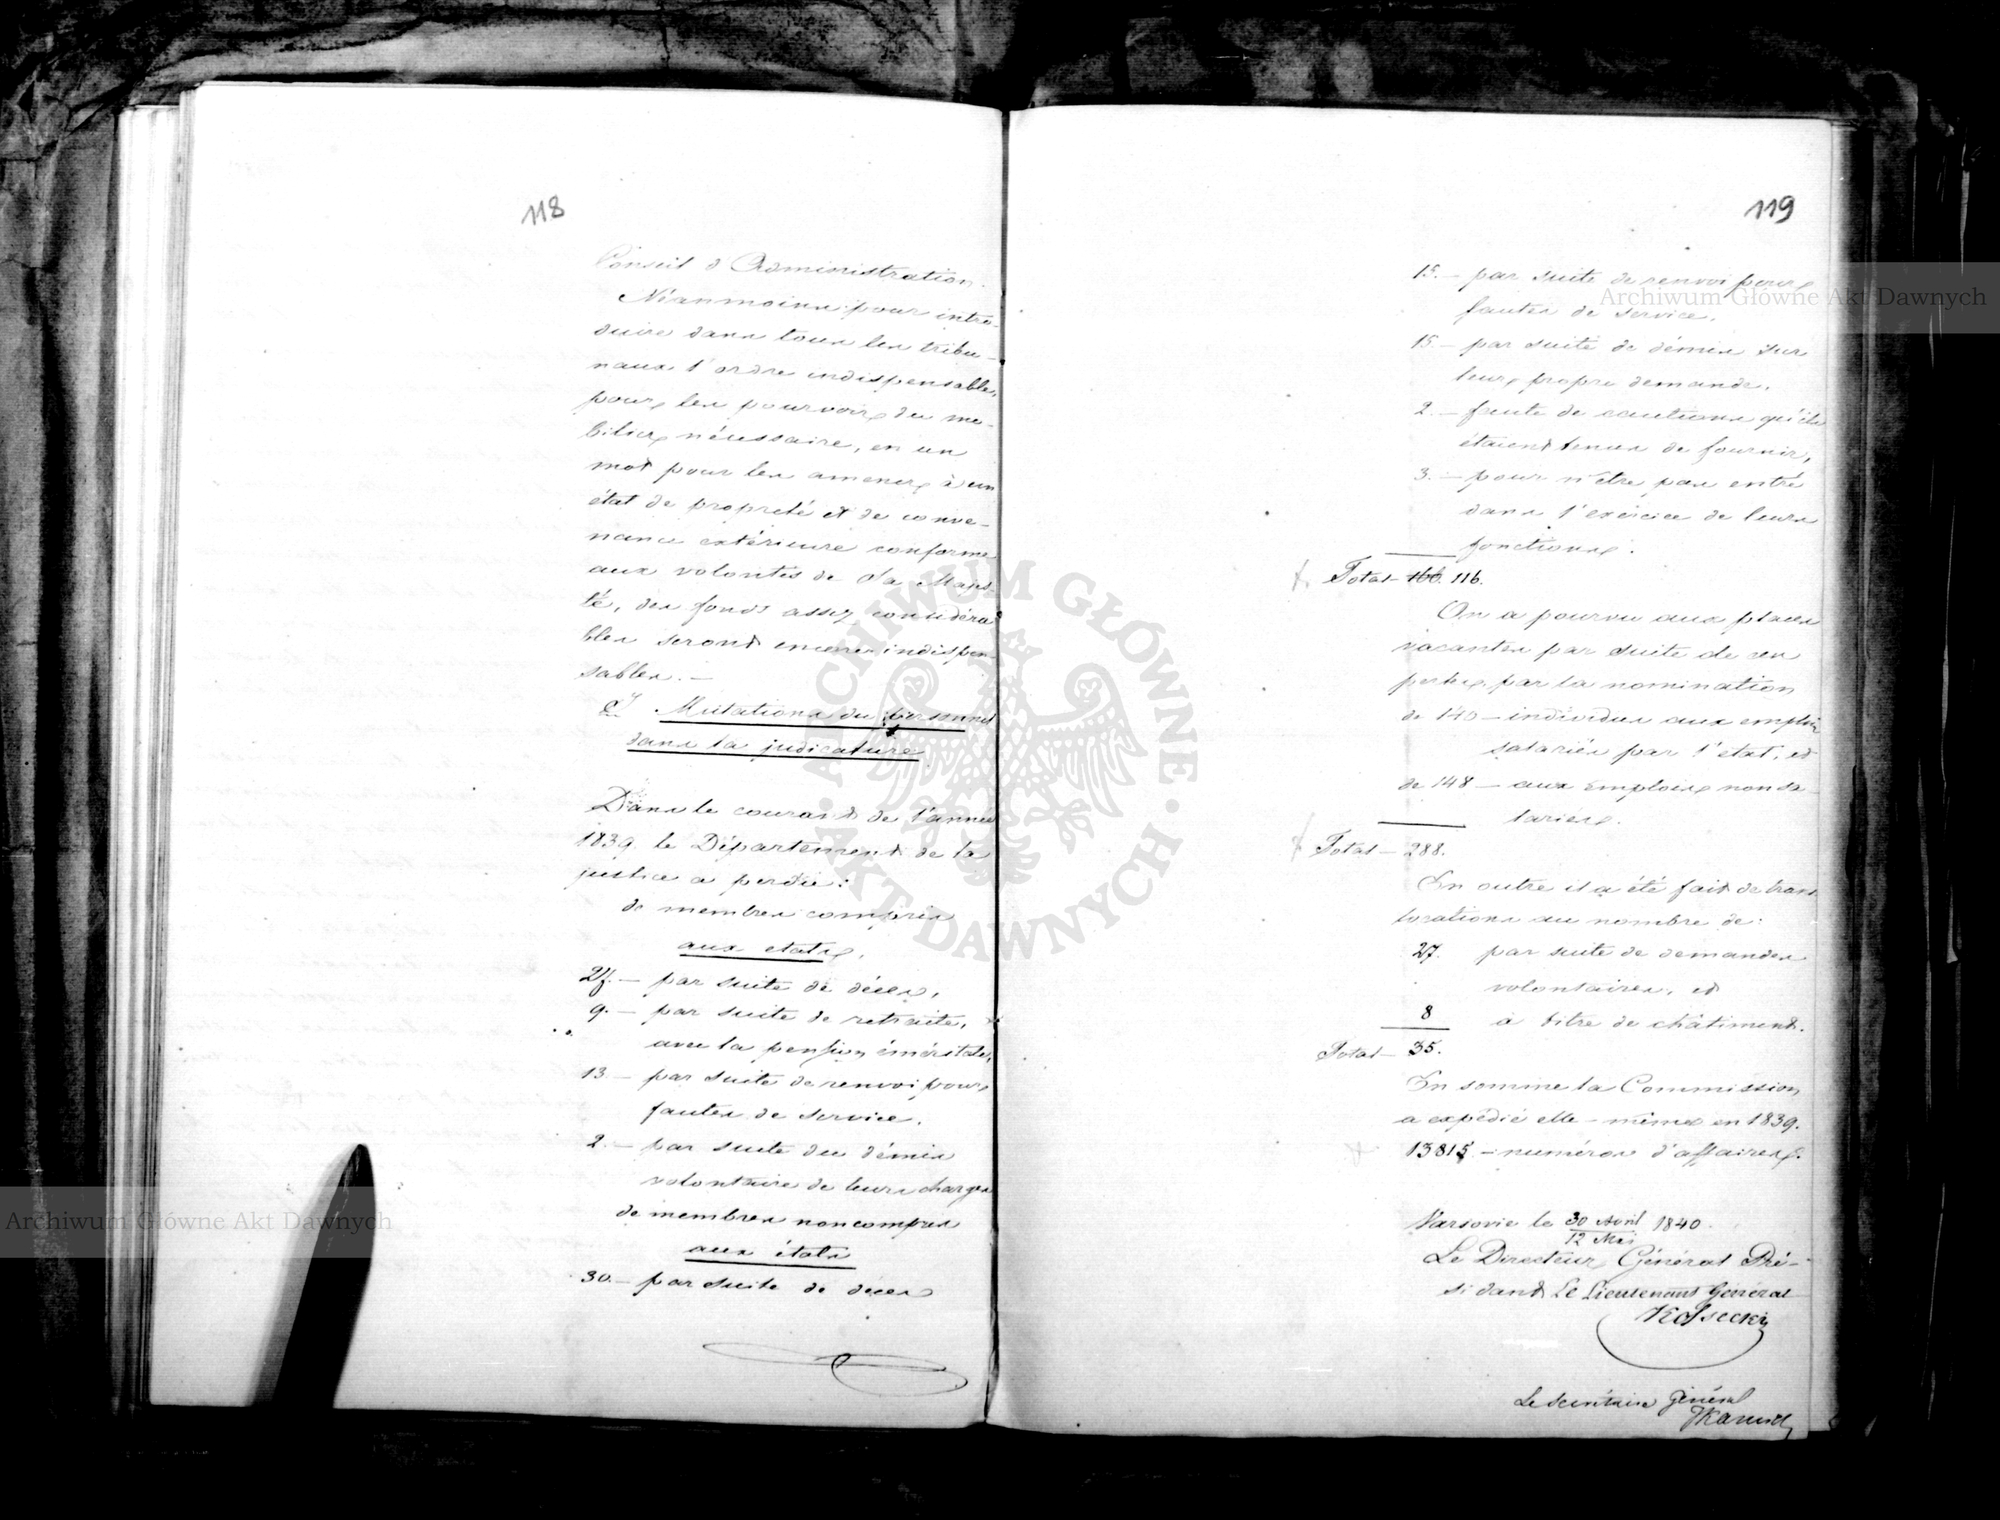 118
Conseil d'Administration.
Néanmoins pour intro-
duire dans tous les tribu-
naux l'ordre indispensable,
pour les pourvoir du mo-
bilier nécessaire, en un
mot pour les amener à un
état de propreté et de conve-
nance extérieure conforme
aux volontés de Sa Majes-
té, des fonds assez considéra-
bles seront encore indispen-
sables. —
Mutations du personnel
dans la judicature
Dans le courant de l'année
1839. le Département de la
justice a perdu:
de membres compris
aux etats.
27. — par suite de décès,
9. — par suite de retraite,
avec la pension éméritale,
13. — par suite de renvoi pour
fautes de service.
2. — par suite du démis
volontaire de leurs charges
de membres non compris
aux états
30. — par suite de décès
119
15. — par suite de renvoi pour
fautes de service.
15. — par suite de démis sur
leur propre demande.
2. — faute de cautions qu'ils
étaient tenus de fournir,
3. — pour n'être pas entré
dans l'exercice de leurs
fonctions.
Total — 160. 116.
On a pourvu aux places
vacantes par suite de ces
pertes, par la nomination
de 140 — individus aux emplois
salariés par l'etat, et
de 148 — aux emplois non sa
lariés.
Total — 288.
En outre il a été fait de trans
locations au nombre de:
27. par suite de demandes
volontaires, et
8 à titre de châtiment.
Total — 35.
En somme la Commission
a expédié elle-même en 1839.
13815. — numéros d'affaires.
Varsovie le 30 Avril / 12 Mai 1840.
Le Directeur Général Pré-
sidant Le Lieutenant Général
Kossecki
Le secrétaire général
Archiwum Główne Akt Dawnych
Archiwum Główne Akt Dawnych
ARCHIWUM GŁÓWNE AKT DAWNYCH